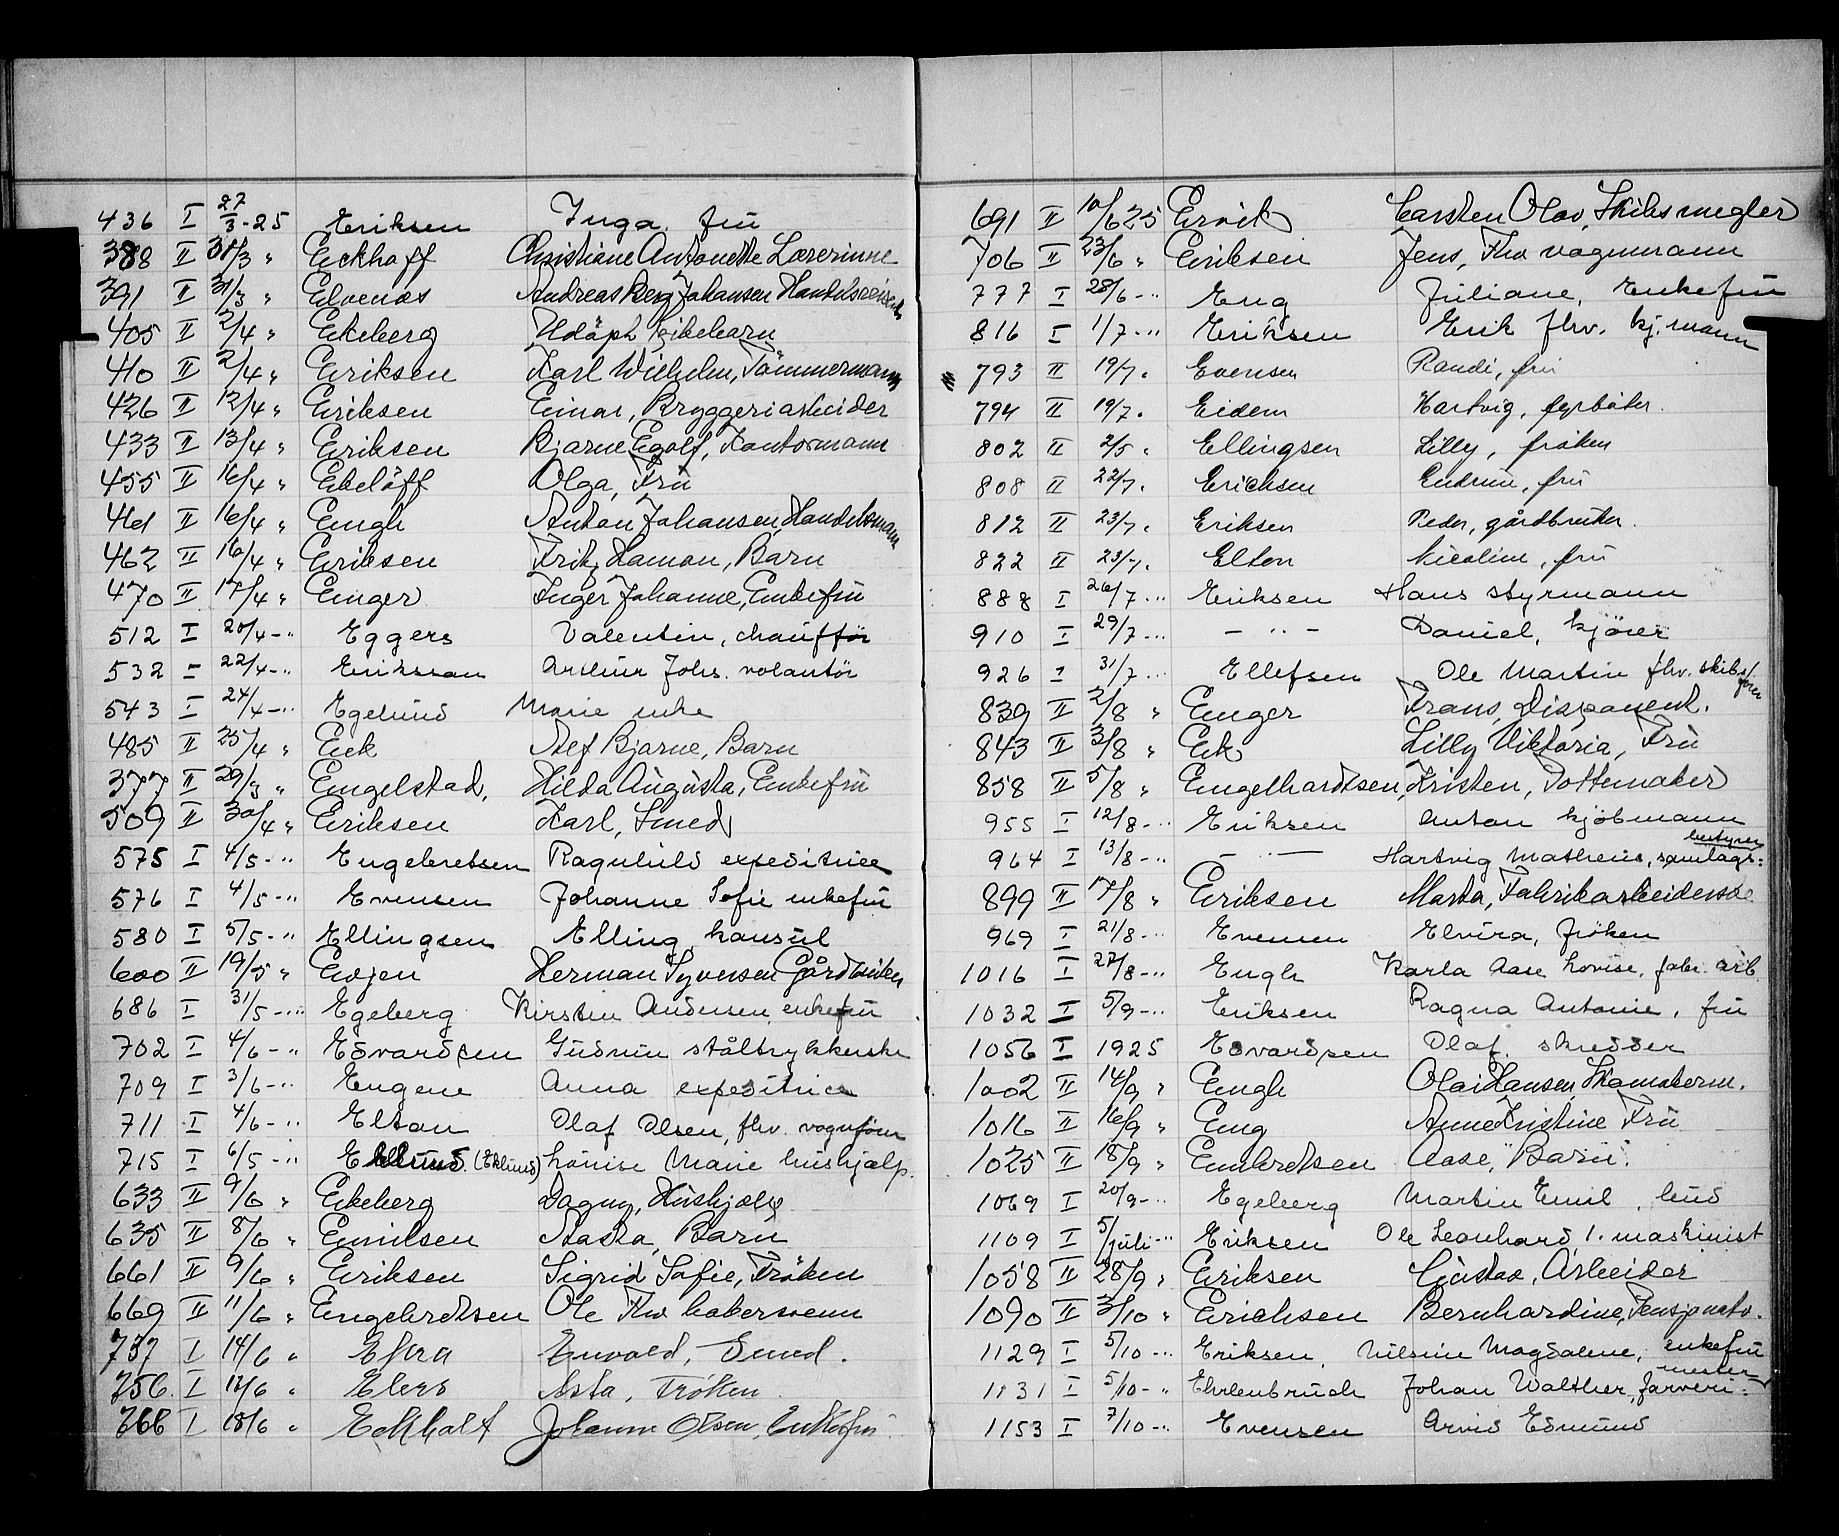 436 I 27/3-25 Eriksen Inga. fru
388 II 31/3 " Eckhoff Christiane Antonette Lærerinne
391 II 31/3 " Elvenæs Andreas Berg Johansen Handelsreisende
405 II 2/4 " Ekeberg Udöpt Pikebarn
410 II 2/4 " Eriksen Karl Wilhelm, Tömmermann
426 II 12/4 " Eriksen Einar, Bryggeriarbeider
433 II 13/4 " Eriksen Bjarne Egolf, Kontormann
455 II 16/4 " Ebelöff Olga, Fru
461 II 16/4 " Engh Anton Johansen, Handelsmann
462 II 16/4 " Eriksen Fritz Haman, Barn
470 II 17/4 " Enger Inger Johanne, Enkefru
512 I 20/4-" Eggers Valentin, chaufför
532 - 22/4-" Erikssan Arthur Johs. volantör
543 I 24/4-" Egelund Marie enke
485 II 25/4 " Eek Alf Bjarne, Barn
377 II 29/3 " Engelstad, Hilda Augusta, Enkefru
509 II 30/4 " Eriksen Karl, Smed
575 I 4/5-" Engebretsen Ragnhild expeditrice
576 I 4/5-" Evensen Johanne Sofie enkefru
580 I 5/5-" Ellingsen Elling konsul
600 II 19/5 " Evjen Herman Syversen Gårdbruker
686 I 31/5-" Egeberg Kirsten Andersen enkefru
702 I 4/6-" Edvardsen Gudrun ståltrykkerske
709 I 3/6-" Eugene Anna expeditrice
711 I 4/6-" Elton Olaf Olsen, fhv. vognfører
715 I 6/5-" Eklund (Eklund) Lovise Marie hushjælp.
633 II 9/6 " Eckeberg Dagny, Hushjælp
635 II 8/6 " Emilsen Aasta, Barn
661 II 9/6 " Eriksen Sigrid Sofie, Fröken
669 II 11/6 " Engebretsen Ole Fhv bakersvenn
737 I 14/6 " Efira Enwald, Smed.
756. I 12/6 " Elers Asta, Frøken.
766 I 18/6 " Eckholt Johanne Olsen, Enkefru.
691 II 10/6 25 Ervik Carsten Olav, Skibsmegler
706 II 23/6 " Eriksen Jens, Fhv vognmann
777 I 28/6-" Eng Juliane, Enkefru
816 I 1/7-" Eriksen Erik fhv. kj.mann
793 II 19/7. Evensen Randi, fru
794 II 19/7. Eidem Hartvig, fyrbøter.
802 II 2/5 " Ellingsen Lilly, frøken
808 II 22/7. Erichsen Gudrun, fru
812 II 23/7. Eriksen Peder, gårdbruker.
822 II 23/7. Elton Nicoline, fru
888 I 26/7-" Eriksen Hans styrmann
910 I 29/7-" - " - Daniel, kjører
926 I 31/7-" Ellefsen Ole Martin fhv. skibsfører
839 II 2/8 " Enger Frans, Disponent.
843 II 3/8 " Ek Lilly Viktoria, Fru
858 II 5/8 " Engelhardtsen, Kristen, Pottemaker
955 I 12/8-" Eriksen Anton kjöbmann
964 I 13/8-" - " - Hartvig Matheus, samlags:bestyrer
899 II 17/8 " Eriksen Marta, Fabrikarbeiderske
969 I 21/8-" Evensen Elvira, frøken
1016 I 27/8-" Engh Karla Aase Lovise, fabr. arb
1032 I 5/9-" Eriksen Ragna Antonie, fru
1056 I 1925 Edvardsen Olaf. skredder
1002 II 14/9 " Engh Olai Hansen, Skomakerm.
1016 II 16/9 " Eng Anne Kristine Fru
1025 II 18/9 " Embretsen Aase, Barn.
1069 I 20/9-" Egeberg Martin Emil, bud
1109 I 5/juli-" Eriksen Ole Leonhard 1. maskinist
1058 II 28/9 " Eriksen Gustav, Arbeider
1090 II 3/10 " Erichsen Bernhardine, Pensjonatv.
1129 I 5/10-" Eriksen, Nilsine Magdalene, enkefru
1131 I 5/10-" Ehrlenbruch Johan Walther, farveri:mester
1153 I 7/10-" Evensen Arvid Edmund